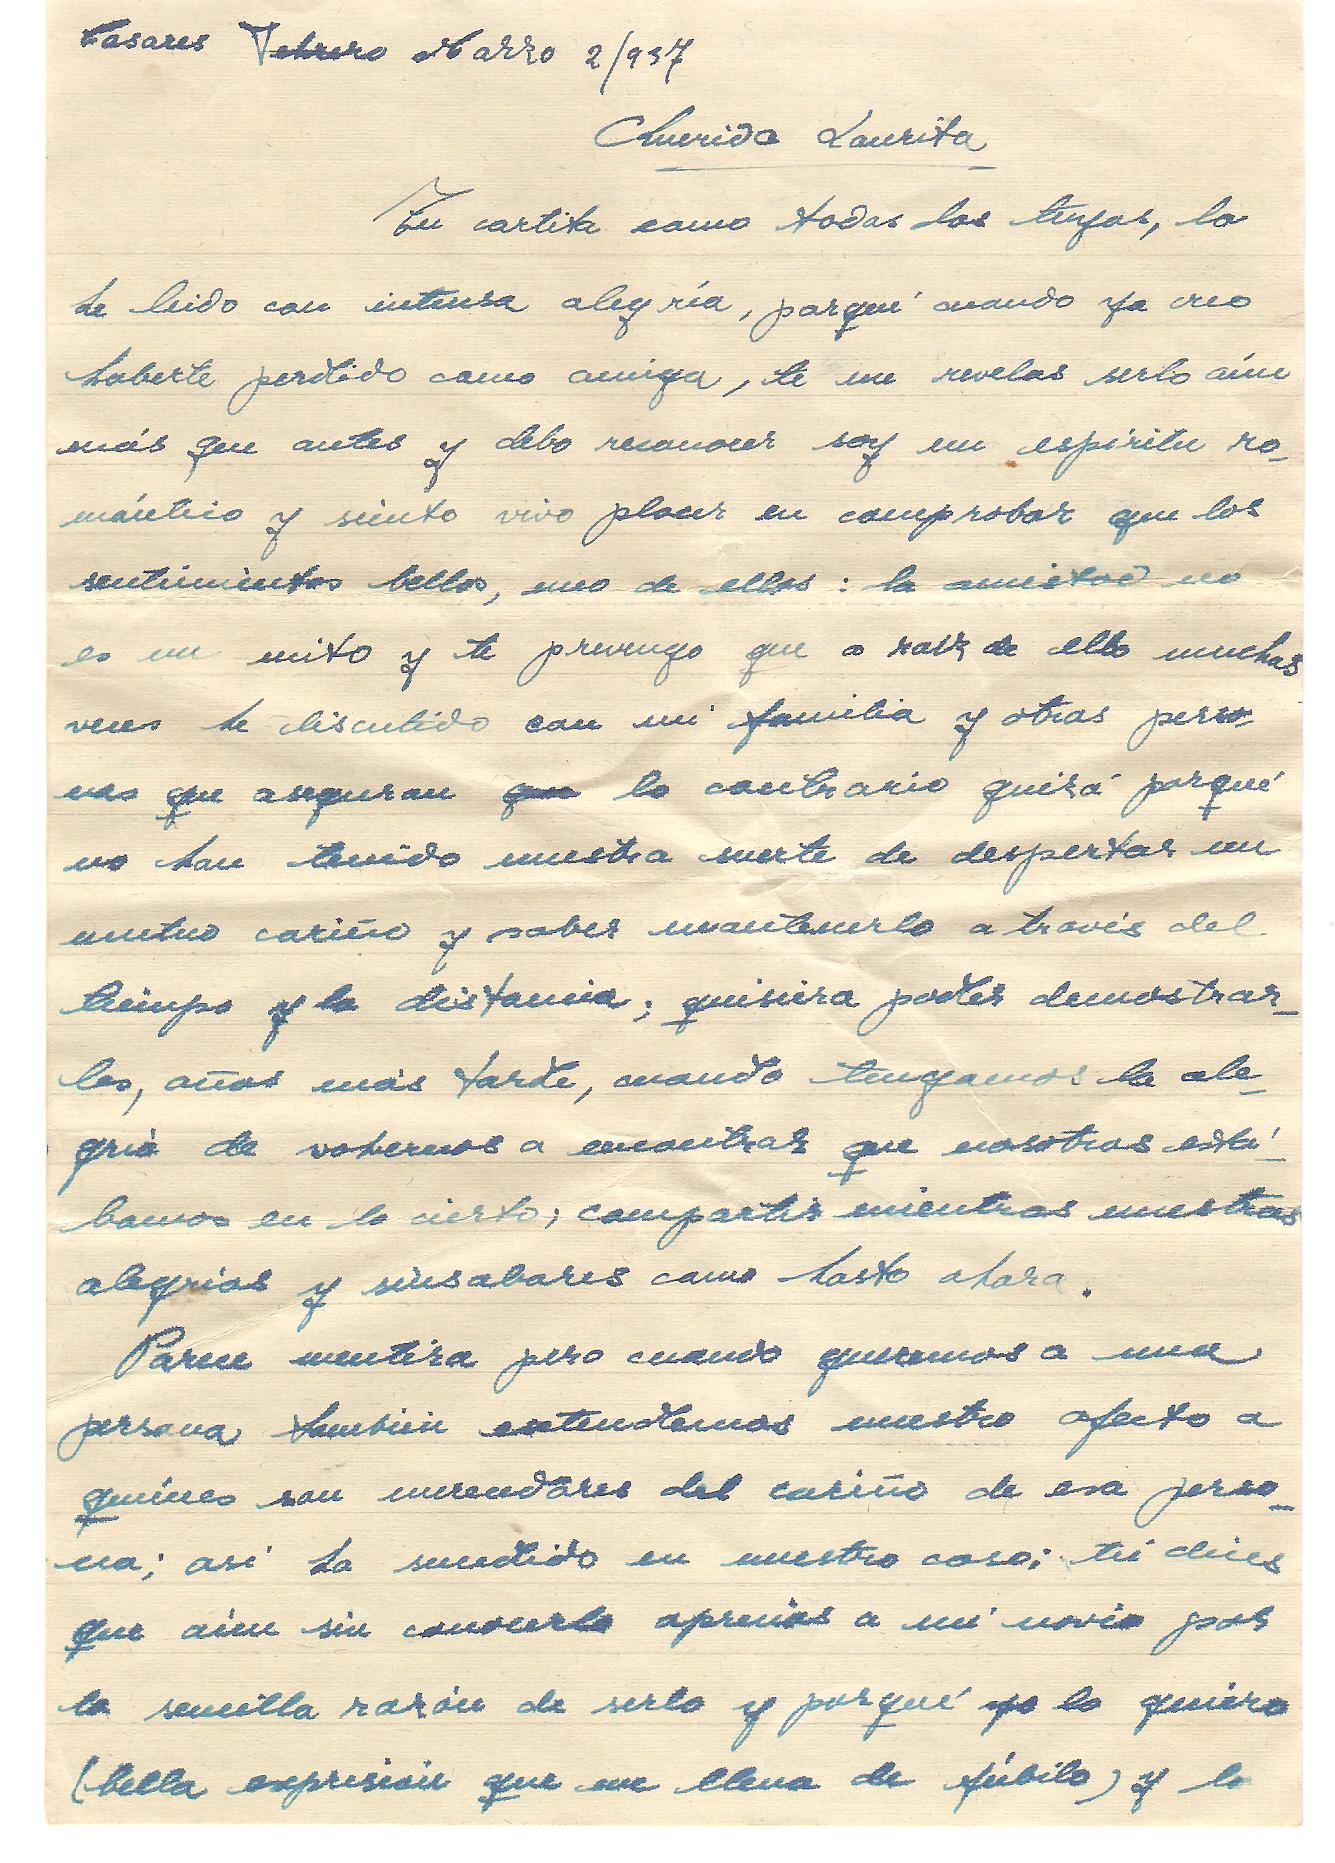 Casares Febrero Marzo 2/937
Querida Laurita
Tu cartita como todas las tuyas, la
he leido con intensa alegría, porqué cuando ya creo
haberte perdido como amiga, te me revelas serlo aún
más que antes y debo reconocer soy un espíritu ro-
mántico y siento vivo placer en comprobar que los
sentimientos bellos, uno de ellos: la amistad no
es un mito y te prevengo que a raíz de ello muchas
veces he discutido con mi familia y otras perso-
nas que aseguran que lo contrario quizá porqué
no han tenido nuestra suerte de despertar un
mutuo cariño y saber mantenerlo a través del
tiempo y la distancia; quisiera poder demostrar-
les, años más tarde, cuando tengamos la ale-
gría de volvernos a encontrar que nosotras está-
bamos en lo cierto; compartir mientras nuestras
alegrías y sinsabores como hasta ahora.
Parece mentira pero cuando queremos a una
persona también extendemos nuestro afecto a
quienes son merecedores del cariño de esa perso-
na; así ha sucedido en nuestro caso; tú dices
que aún sin conocerlo aprecias a mi novio por
la sencilla razón de serlo y porqué yo lo quiero
(bella expresión que me llena de júbilo) y lo